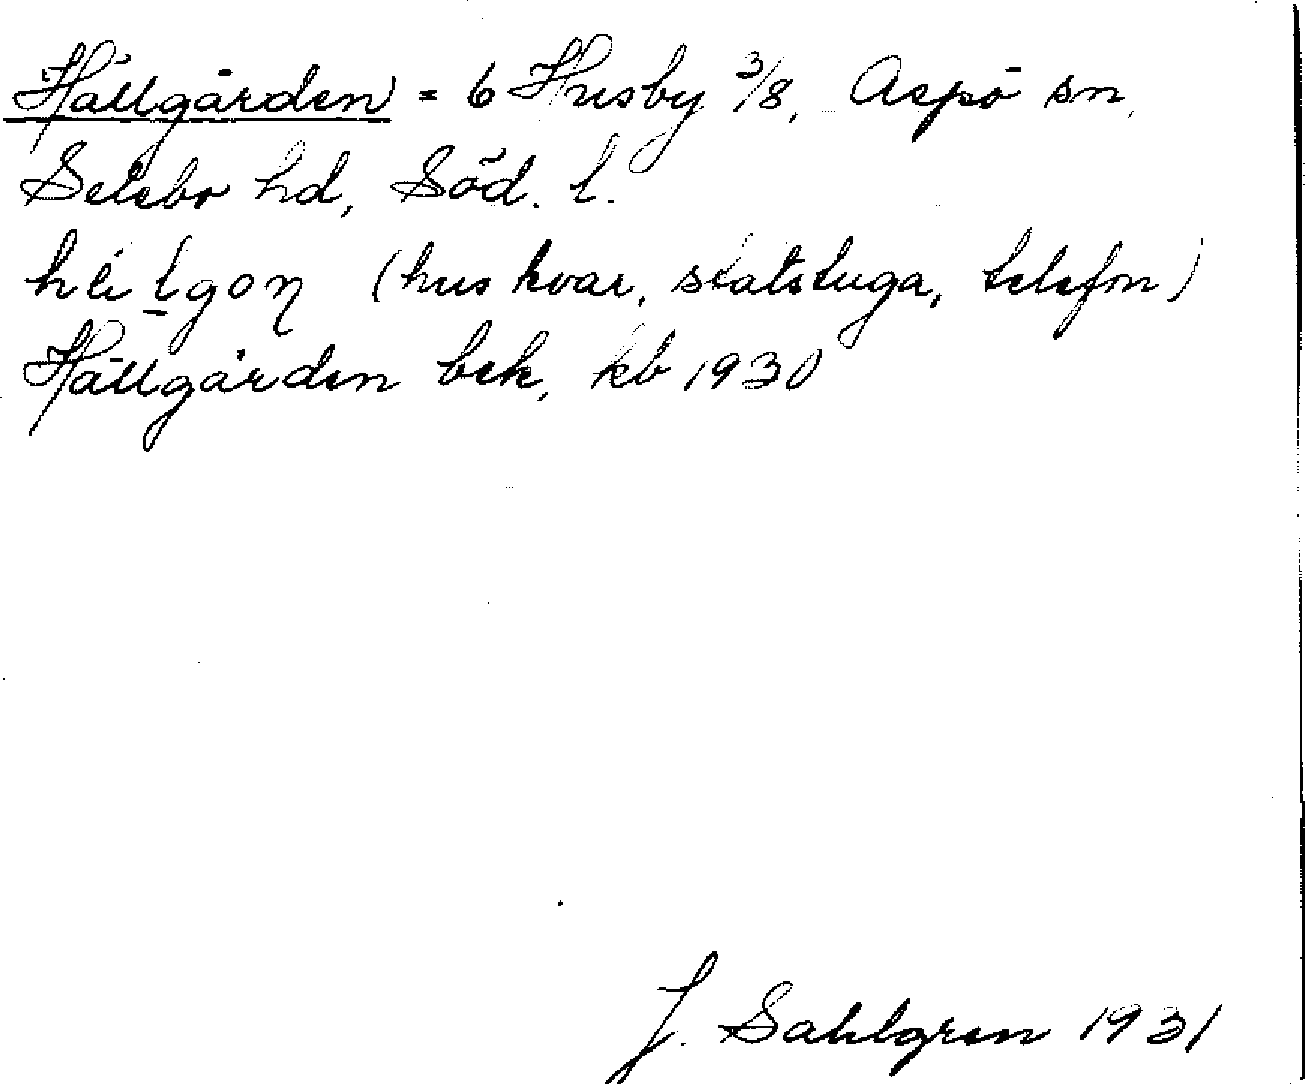 Hällgården = 6 Husby 3/8, Aspö sn,
Selebo hd, Söd. l.
(hus kvar, statstuga, telefon)
Hällgården bek, kb 1930
J. Sahlgren 1931